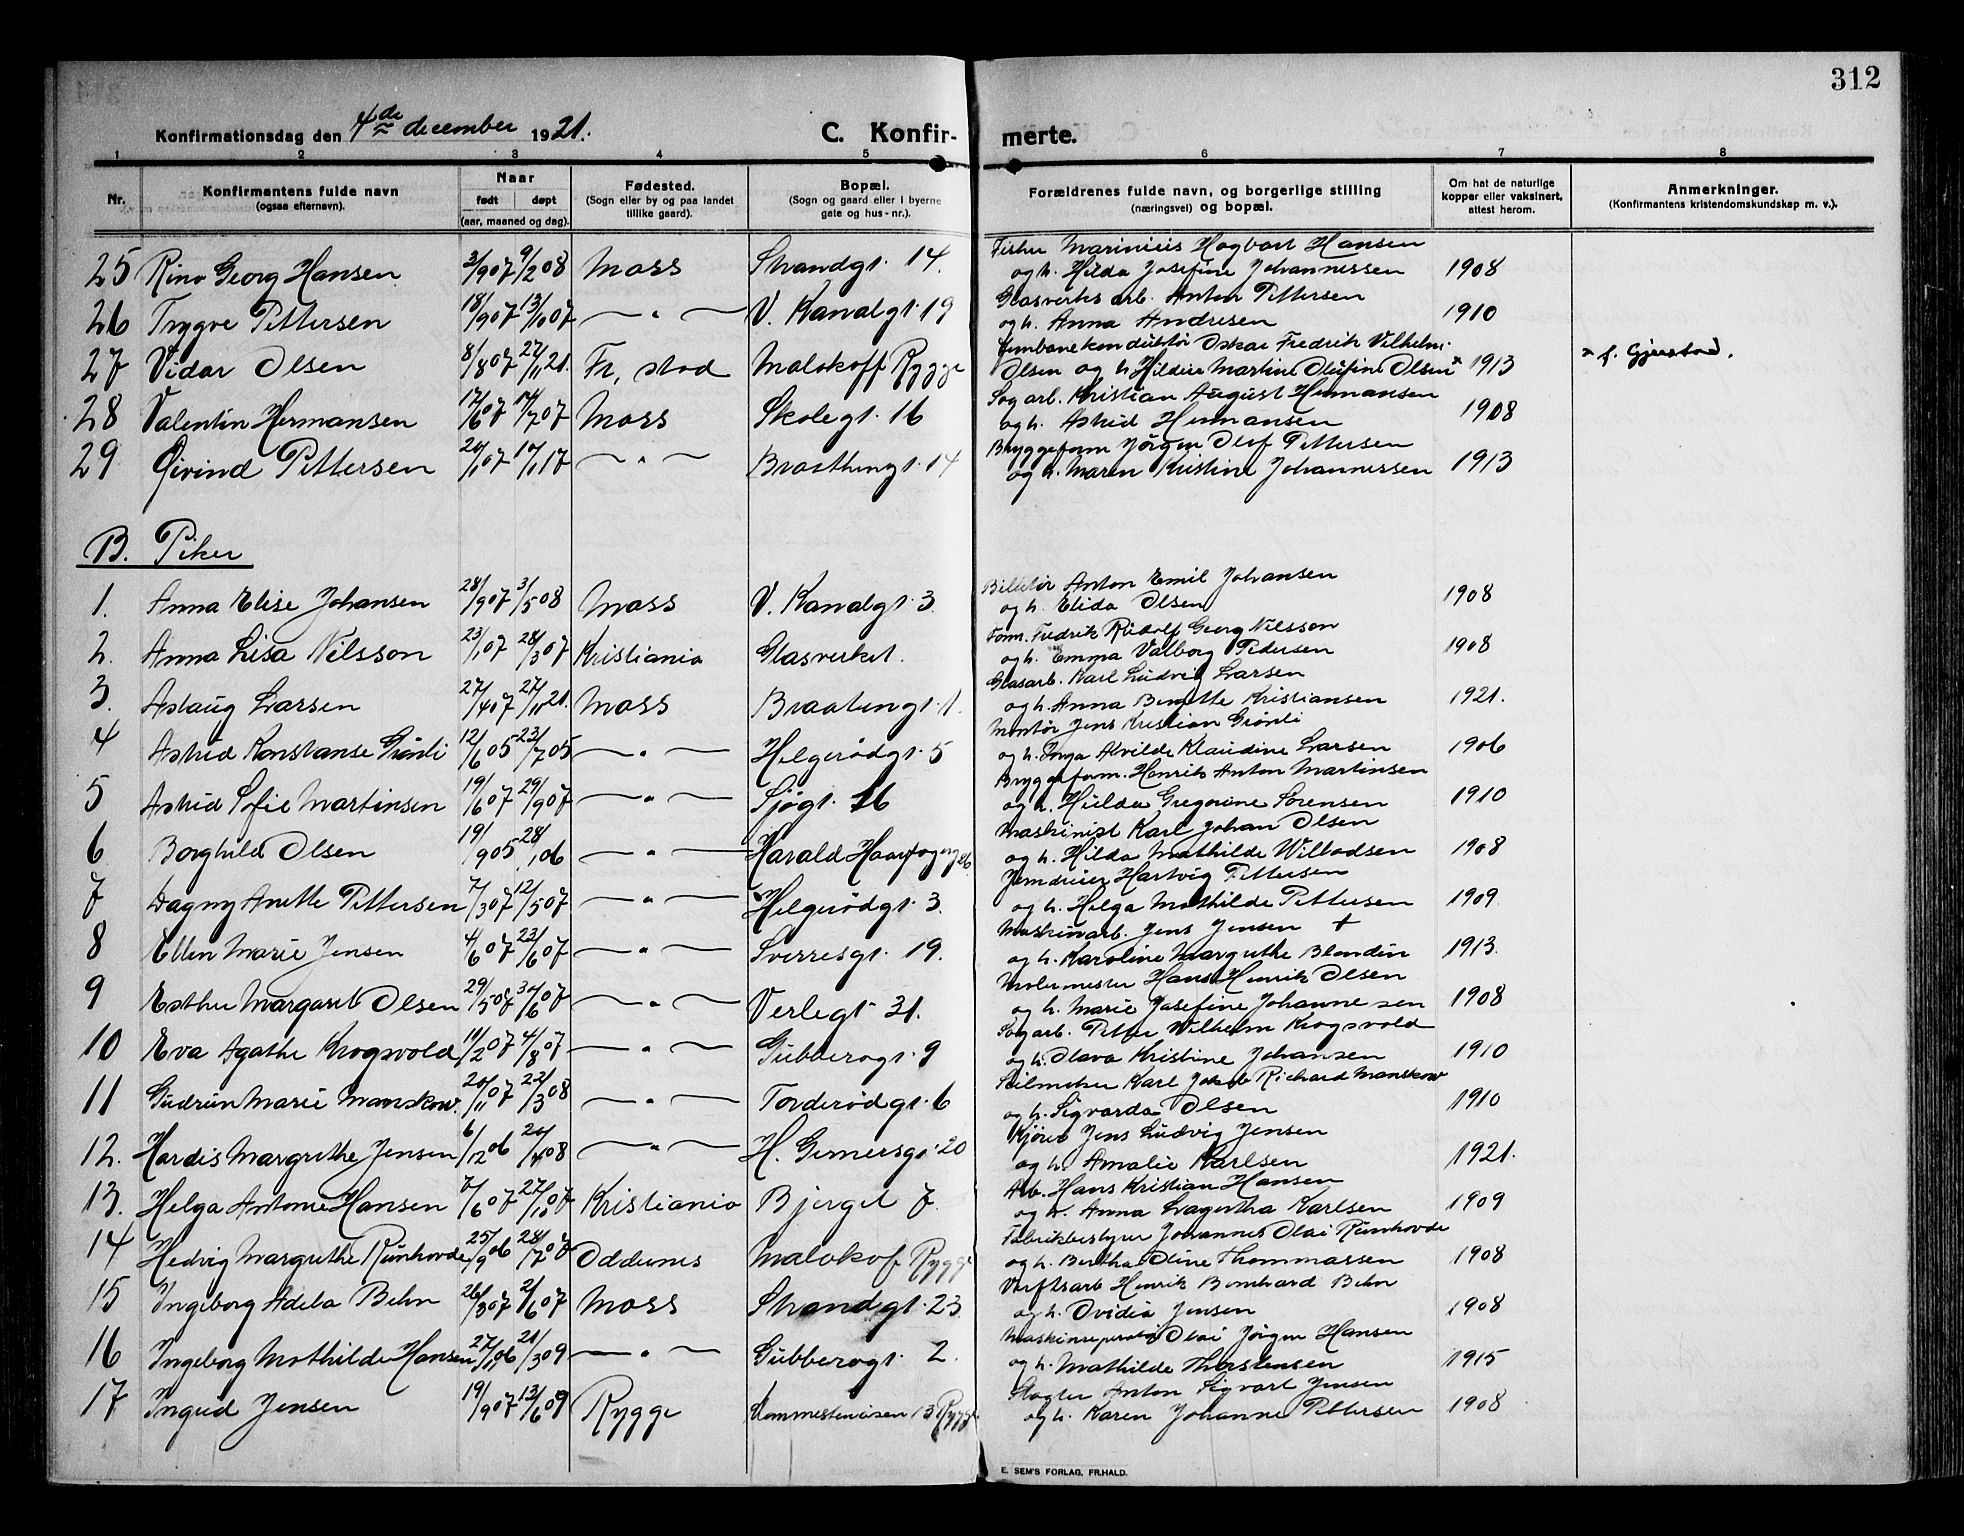 312
Konfirmationsdag den 4de december 1921. C. Konfir- merte.
1 2 3 4 5 6 7 8
Nr. Konfirmantens fulde navn (ogsaa efternavn). Naar født døpt (aar, maaned og dag). Fødested. (Sogn eller by og paa landet tillike gaard). Bopæl. (Sogn og gaard eller i byerne gate og hus-nr.). Forældrenes fulde navn, og borgerlige stilling (næringsvei) og bopæl. Om hat de naturlige kopper eller vaksinert, attest herom. Anmerkninger. (Konfirmantens kristendomskundskap m. v.).
25 Rino Georg Hansen 3/9 07 9/2 08 Moss Strandgt. 14. Fisker Marinius Hagbart Hansen
og h. Hilda Josefine Johannessen 1908
26 Trygve Pettersen 18/9 07 13/10 07 — " — V. Kanalgt. 19 Glasverks arb. Anton Pettersen
og h. Anna Andresen 1910
27 Vidar Olsen 8/8 07 27/11 21. Fr. stad Malakoff Rygge Jernbanekonduktør Oskar Fredrik Vilhelm
Olsen og h. Hildur Martine Olufine Olsen x 1913 x f. Gjerstad.
28 Valentin Hermansen 17/6 07 14/7 07 Moss Skolegt. 16 Sagarb. Kristian August Hermansen
og h. Astrid Hermansen 1908
29 Øivind Pettersen 20/1 07 10/1 17 — " — Braatengt. 14 Bryggeform. Jørgen Olof Pettersen
og h. Maren Kristine Johannessen 1913
B. Piker
1. Anna Elise Johansen 28/9 07 3/5 08 Moss V. Kanalgt. 3. Billetør Anton Emil Johansen
og h. Elida Olsen 1908
2. Anna Lisa Nilsson 23/1 07 28/3 07 Kristiania Glasverket. Form. Fredrik Rudolf Georg Nilsson
og h. Emma Valborg Pedersen 1908
3. Aslaug Larsen 27/4 07 27/11 21. Moss Braatengt. 1. Glasarb. Karl Ludvig Larsen
og h. Anna Benette Kristiansen 1921.
4 Astrid Konstanse Grønli 12/6 05 23/7 05 — " — Helgerødgt. 5 Montør Jens Kristian Grønli
og h. Inga Alvilde Klaudine Larsen 1906
5 Astrid Sofie Martinsen 19/6 07 29/9 07 — " — Sjøgt. 16 Bryggeform. Henrik Anton Martinsen
og h. Hulda Gregorine Sørensen 1910
6 Borghild Olsen 19/9 05 28/1 06 — " — Harald Haarfagersgt Maskinist Karl Johan Olsen
og h. Hilda Mathilde Willadsen 1908
7 Dagny Anette Pettersen 7/3 07 12/5 07 — " — Helgerødgt. 3. Jerndreier Hartvig Pettersen
og h. Helga Mathilde Pettersen 1909.
8 Ellen Marie Jensen 4/6 07 23/6 07 — " — Sverresgt. 19. Maskinarb. Jens Jensen +
og h. Karoline Margrethe Blondin 1913.
9 Esther Margaret Olsen 29/5 07 30/6 07 — " — Verlegt. 31. Molermester Hans Henrik Olsen
og h. Marie Josefine Johannesen 1908
10 Eva Agathe Krogsvold 11/2 07 4/8 07 — " — Gubberogt. 9 Sagarb. Petter Wilhelm Krogsvold
og h. Olava Kristine Johansen 1910
11 Gudrun Marie Manskow. 20/11 07 22/3 08 — " — Torderødgt. 6 Seilmaker Karl Jakob Richard Manskow
og h. Sigvarda Olsen 1910
12. Hardis Margrethe Jensen 6/12 06 20/4 08 — " — H. Gernersgt. 20 Kjører Jens Ludvig Jensen
og h. Amalie Karlsen 1921.
13. Helga Antonie Hansen 7/6 07 27/10 07 Kristiania Bjerget 7. Arb. Hans Kristian Hansen
og h. Anna Lagertha Karlsen 1909
14 Hedvig Margrethe Runhovde 25/9 06 28/7 07 Oddernes Malakof Rygge Fabrikbestyrer Johannes Olai Runhovde
og h. Bertha Oline Thommassen 1908
15 Ingeborg Adela Behn 26/3 07 2/6 07 Moss Strandgt. 23 Verftsarb Henrik Bernhard Behn
og h. Ovidia Jensen 1908
16 Ingeborg Mathilde Hansen 27/1 06 21/3 09 — " — Gubberogt. 2. Maskinreparatør Olai Jørgen Hansen
og h. Mathilde Thorstensen 1915
17 Ingrid Jensen 19/9 07 13/6 09 Rygge 13 Rygge Slagter Anton Sigvart Jensen
og h. Karen Johanne Pettersen 1908
E. SEM'S FORLAG, FR.HALD.